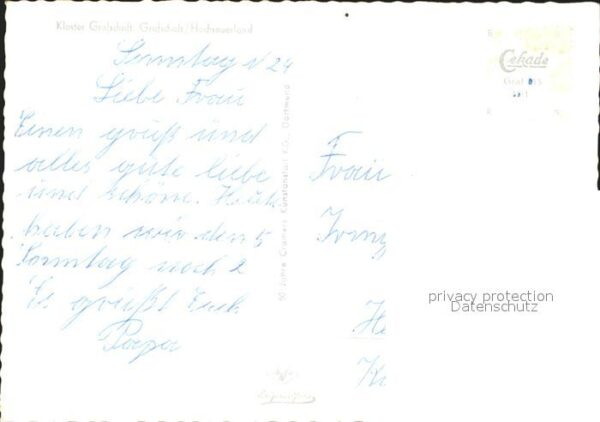 Kloster Grafschaft, Grafschaft/Hochsauerland
Cekade
Sonntag N 24
Liebe Frau
Einen grüß und
alles gute liebe
und schöne. Heute
haben wir den 5
Sonntag noch 2
Es grüßt Euch
Papa
Frau
50 Jahre Cramers Kunstanstalt KG., Dortmund
privacy protection
Datenschutz